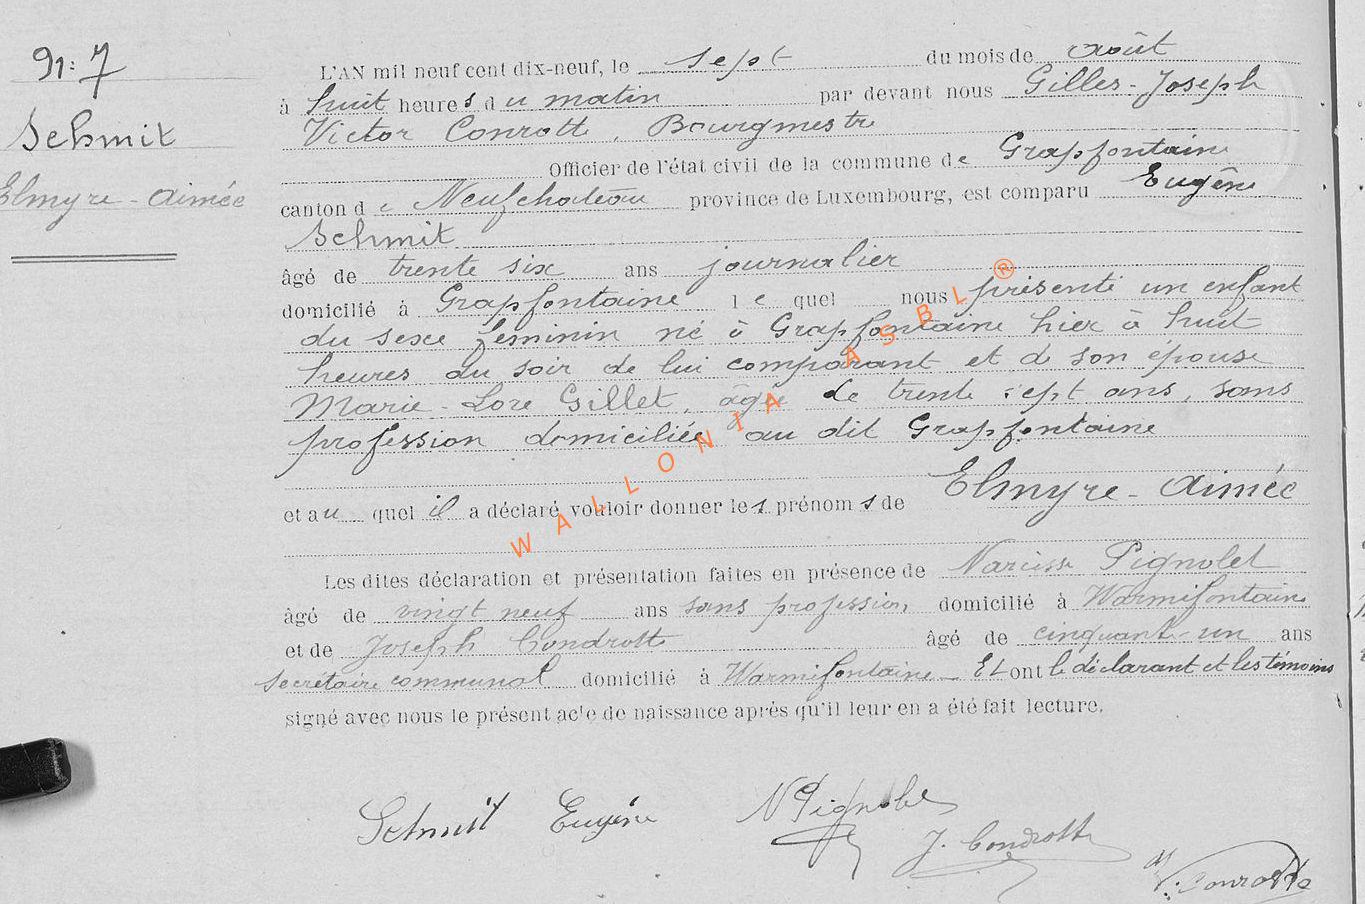 N: 7
Schmit
Elmyre-Aimée
L'AN mil neuf cent dix-neuf, le sept du mois de août
à huit heures du matin par devant nous Gilles-Joseph
Victor Conrott, Bourgmestre
Officier de l'état civil de la commune de Grapfontaine
canton de Neufchateau province de Luxembourg, est comparu Eugène
Schmit
âgé de trente six ans journalier
domicilié à Grapfontaine lequel nous présenté un enfant
du sexe féminin né à Grapfontaine hier à huit
heures du soir de lui comparant et de son épouse
Marie-Lore Gillet, âgée de trente sept ans, sans
profession domiciliée au dit Grapfontaine
et au quel il a déclaré vouloir donner les prénoms de Elmyre-Aimée
Les dites déclaration et présentation faites en présence de Narcisse Pignolet
âgé de vingt neuf ans sans profession, domicilié à Warmifontaine
et de Joseph Condrott âgé de cinquante-un ans
secrétaire communal domicilié à Warmifontaine Et ont le déclarant et les témoins
signé avec nous le présent acte de naissance après qu'il leur en a été fait lecture.
Schmit Eugène N Pignolet
J. Condrott
V. Conrotte
WALLONIA ASBL ®